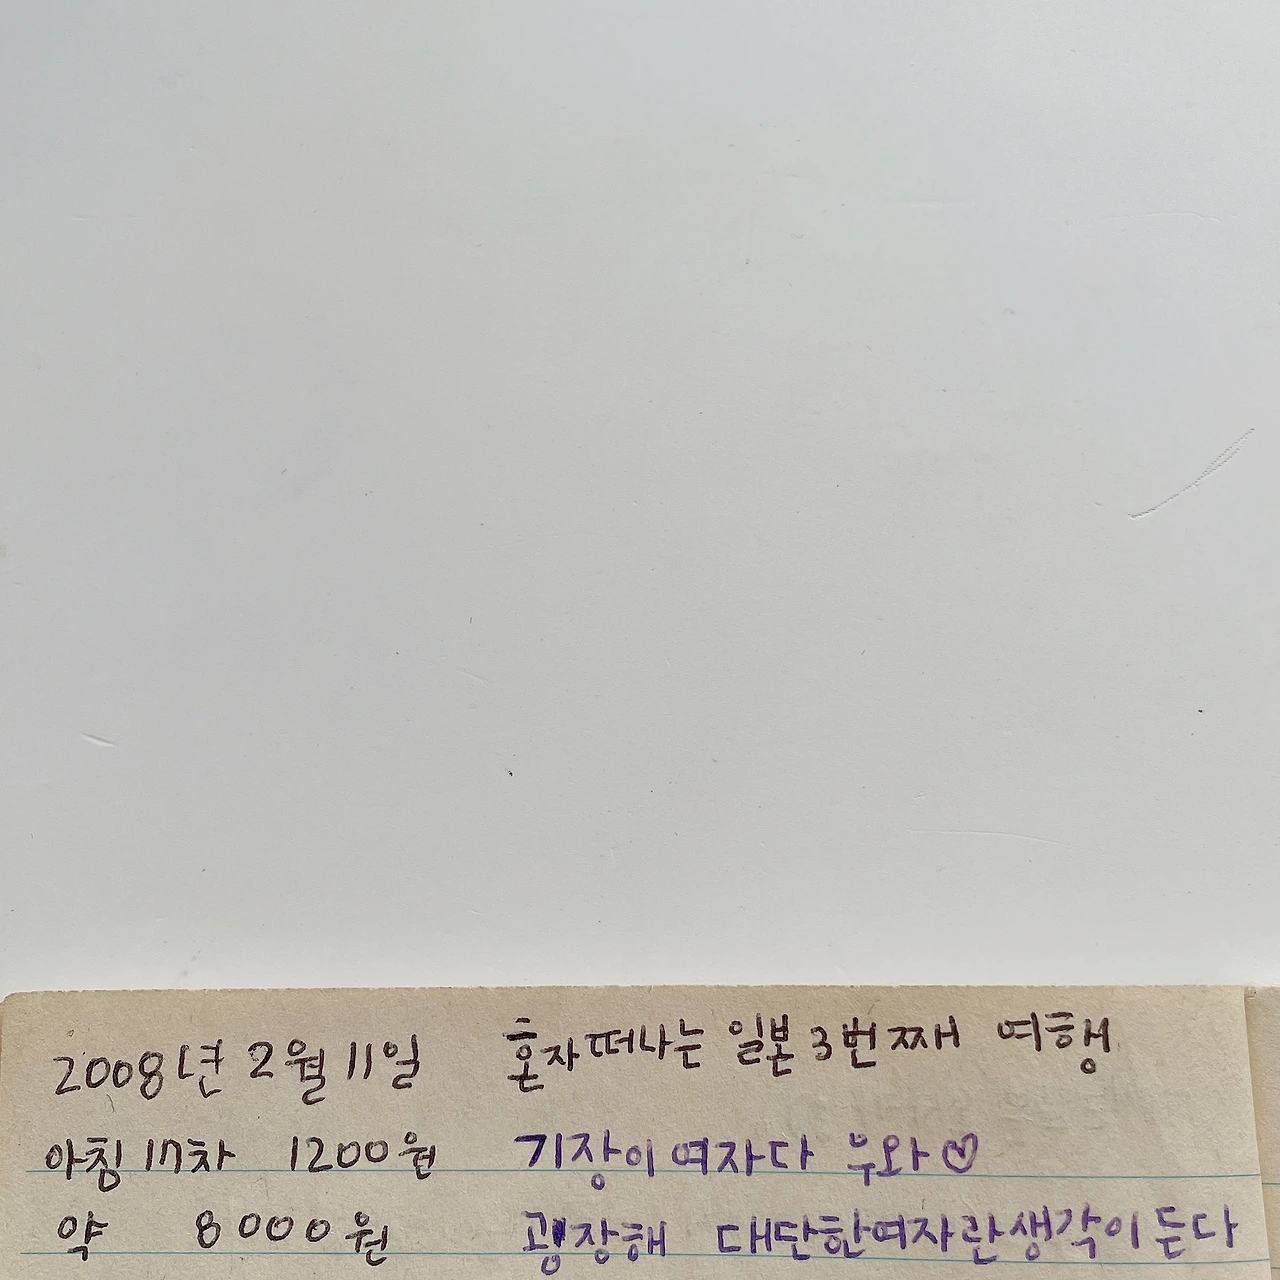 2008년 2월 11일 혼자떠나는 일본 3번째 여행
아침 기차 1200원 기장이 여자다 우와♡
약 8000원 굉장해 대단한여자란생각이 든다